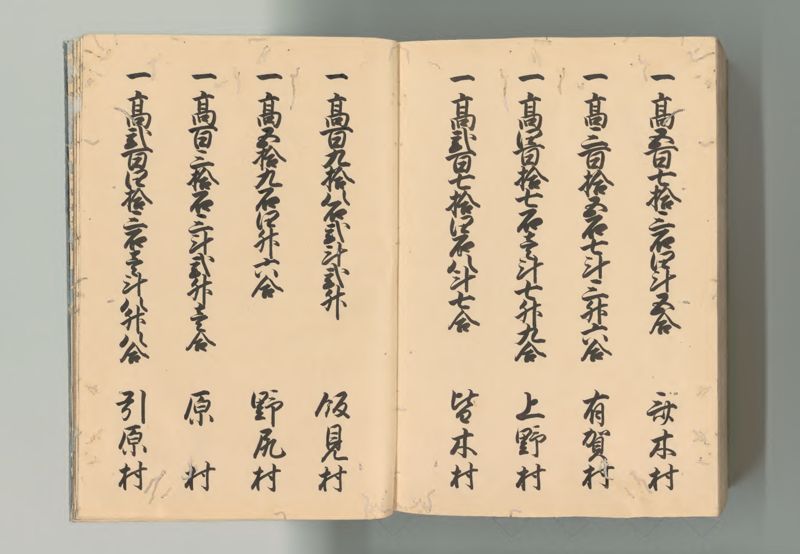 一高五百七拾三石四斗五合 㪽木村
一高三百拾五石七斗三升六合 有賀村
一高四百拾七石壱斗七升九合 上野村
一高弐百七拾四石八斗七合 皆木村
一高百九拾八石弐斗弐升 飯見村
一高五拾九石四升六合 野尻村
一高百三拾石三斗弐升壱合 原村
一高弐百四拾三石壱斗八升八合 引原村